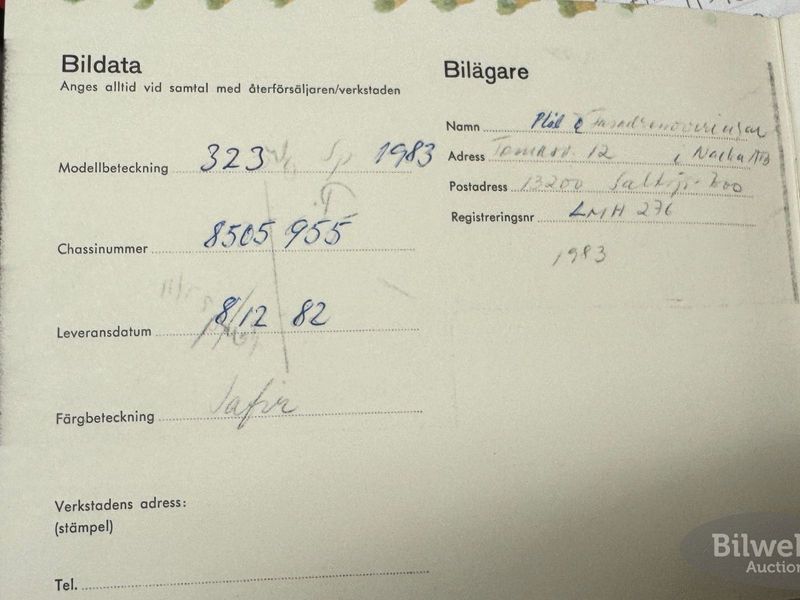 Bildata
Anges alltid vid samtal med återförsäljaren/verkstaden
Modellbeteckning 323 1983
Chassinummer 8505 955
Leveransdatum 8/12 82
Färgbeteckning Safir
Verkstadens adress:
(stämpel)
Tel.
Bilägare
Namn Plåt & Fasadrenoveringar
Adress 12 , Nacka
Postadress 13200
Registreringsnr LMH 276
1983
Bilweb
Auction